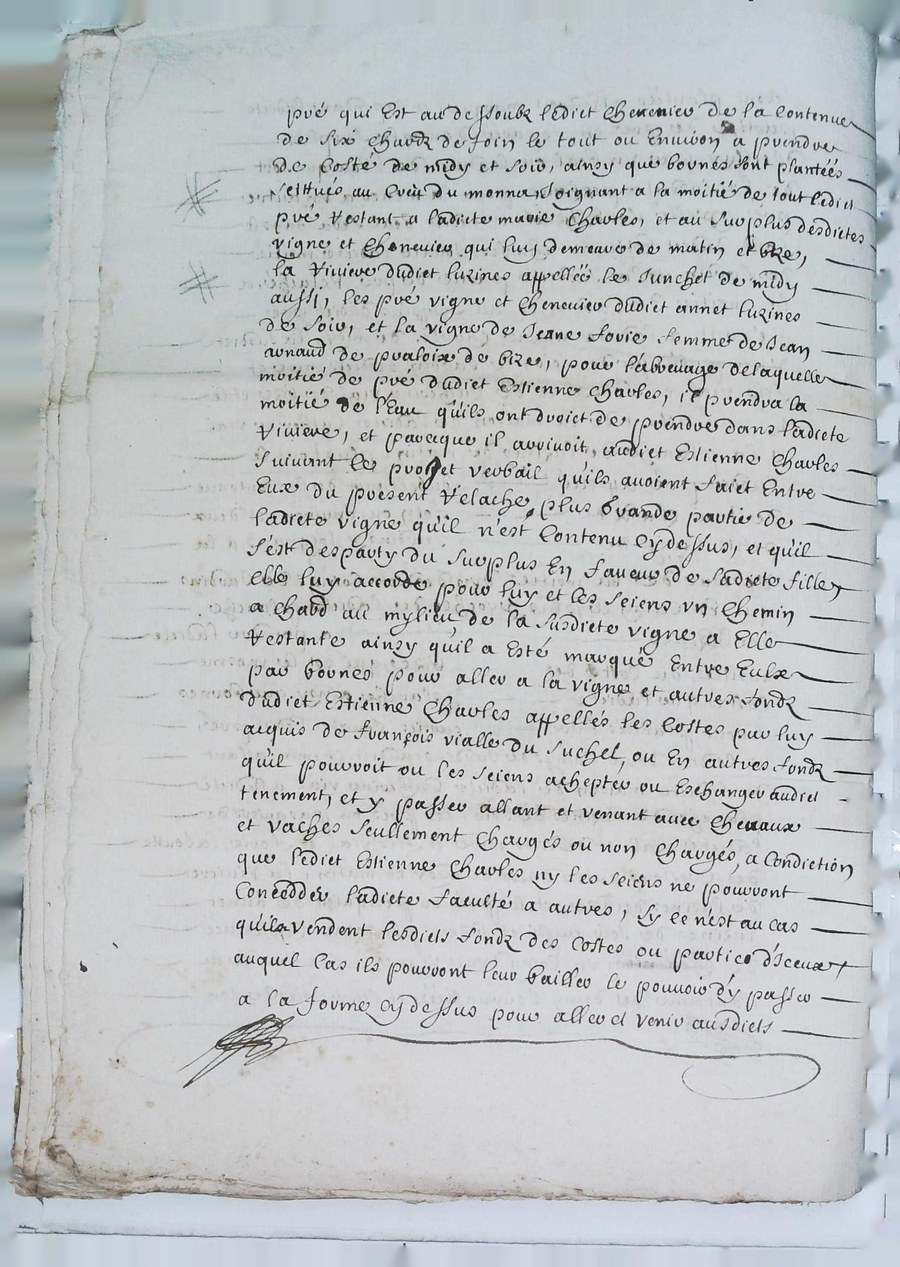 pré qui est au dessoubz ledict chenevier de la contenue
de six chardz de foin le tout ou environ a prendre
de costé de midy et soir, ainsy que bornes sont plantées
scittués au creu du monna, joignant a la moitié de tout ledict
pré restant a ladicte marie Charles, et au surplus desdictes
vigne et chenevier qui luy demeure de matin et bize,
la riviere dudict luzines appellée le Junchet de midy
aussi, les pré vigne et chenevier dudict annet luzines
de soir, et la vigne de Jeane forie femme de Jean
arnaud de praloix de bize, pour labreuvage de laquelle
moitié de pré dudict Estienne Charles, il prendra la
moitié de l'eau qu'ils ont droict de prendre dans ladicte
riviere, et parce que il arrivoit audict Estienne Charles
suivant le project verbail qu'ils avoient faict entre
eux du présent relache, plus grande partie de
ladicte vigne qu'il n'est contenu cy dessus, et qu'il
s'est desparty du surplus en faveur de sadicte fille,
elle luy accorde pour luy et les seiens un chemin
a chard au mylieu de la susdicte vigne a elle
restante ainsy qu'il a esté marqué entre eulx
par bornes pour aller a la vigne et autres fondz
dudict Estienne Charles appellés les Costes par luy
acquis de françois vialle du suchel, ou en autres fondz
qu'il pourroit ou les seiens achepter ou eschanger audict
tenement, et y passer allant et venant avec chevaux
et vaches seullement chargés ou non chargés, a condiction
que ledict Estienne Charles ny les seiens ne pourront
concedder ladicte faculté a autres, sy ce n'est au cas
qu'ils vendent lesdicts fondz des Costes ou partie d'iceux
auquel cas ils pourront leur bailler le pouvoir d'y passer
a la forme cy dessus pour aller et venir ausdicts